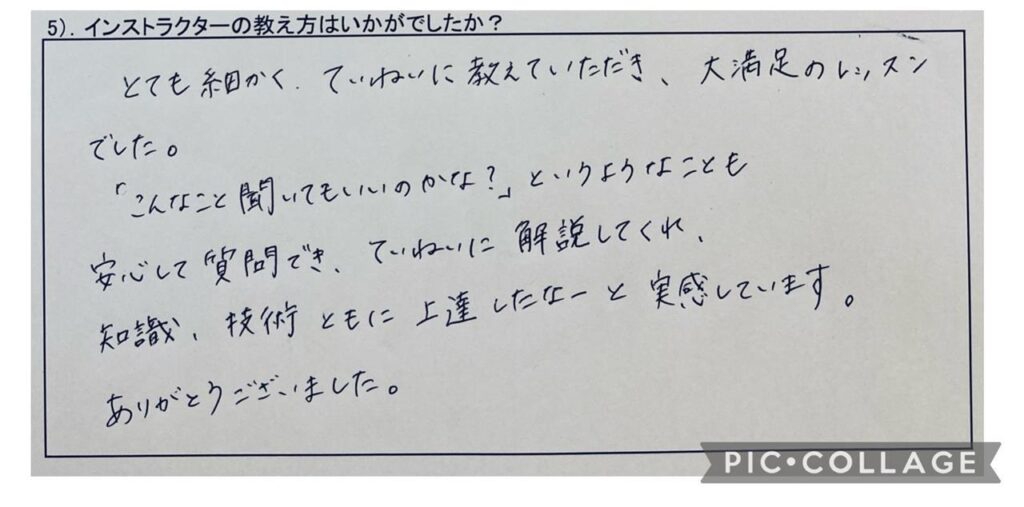 5). インストラクターの教え方はいかがでしたか？
とても細かく、ていねいに教えていただき、大満足のレッスン
でした。
「こんなこと聞いてもいいのかな?」というようなことも
安心して質問でき、ていねいに解説してくれ、
知識、技術ともに上達したなーと実感しています。
ありがとうございました。
PIC•COLLAGE